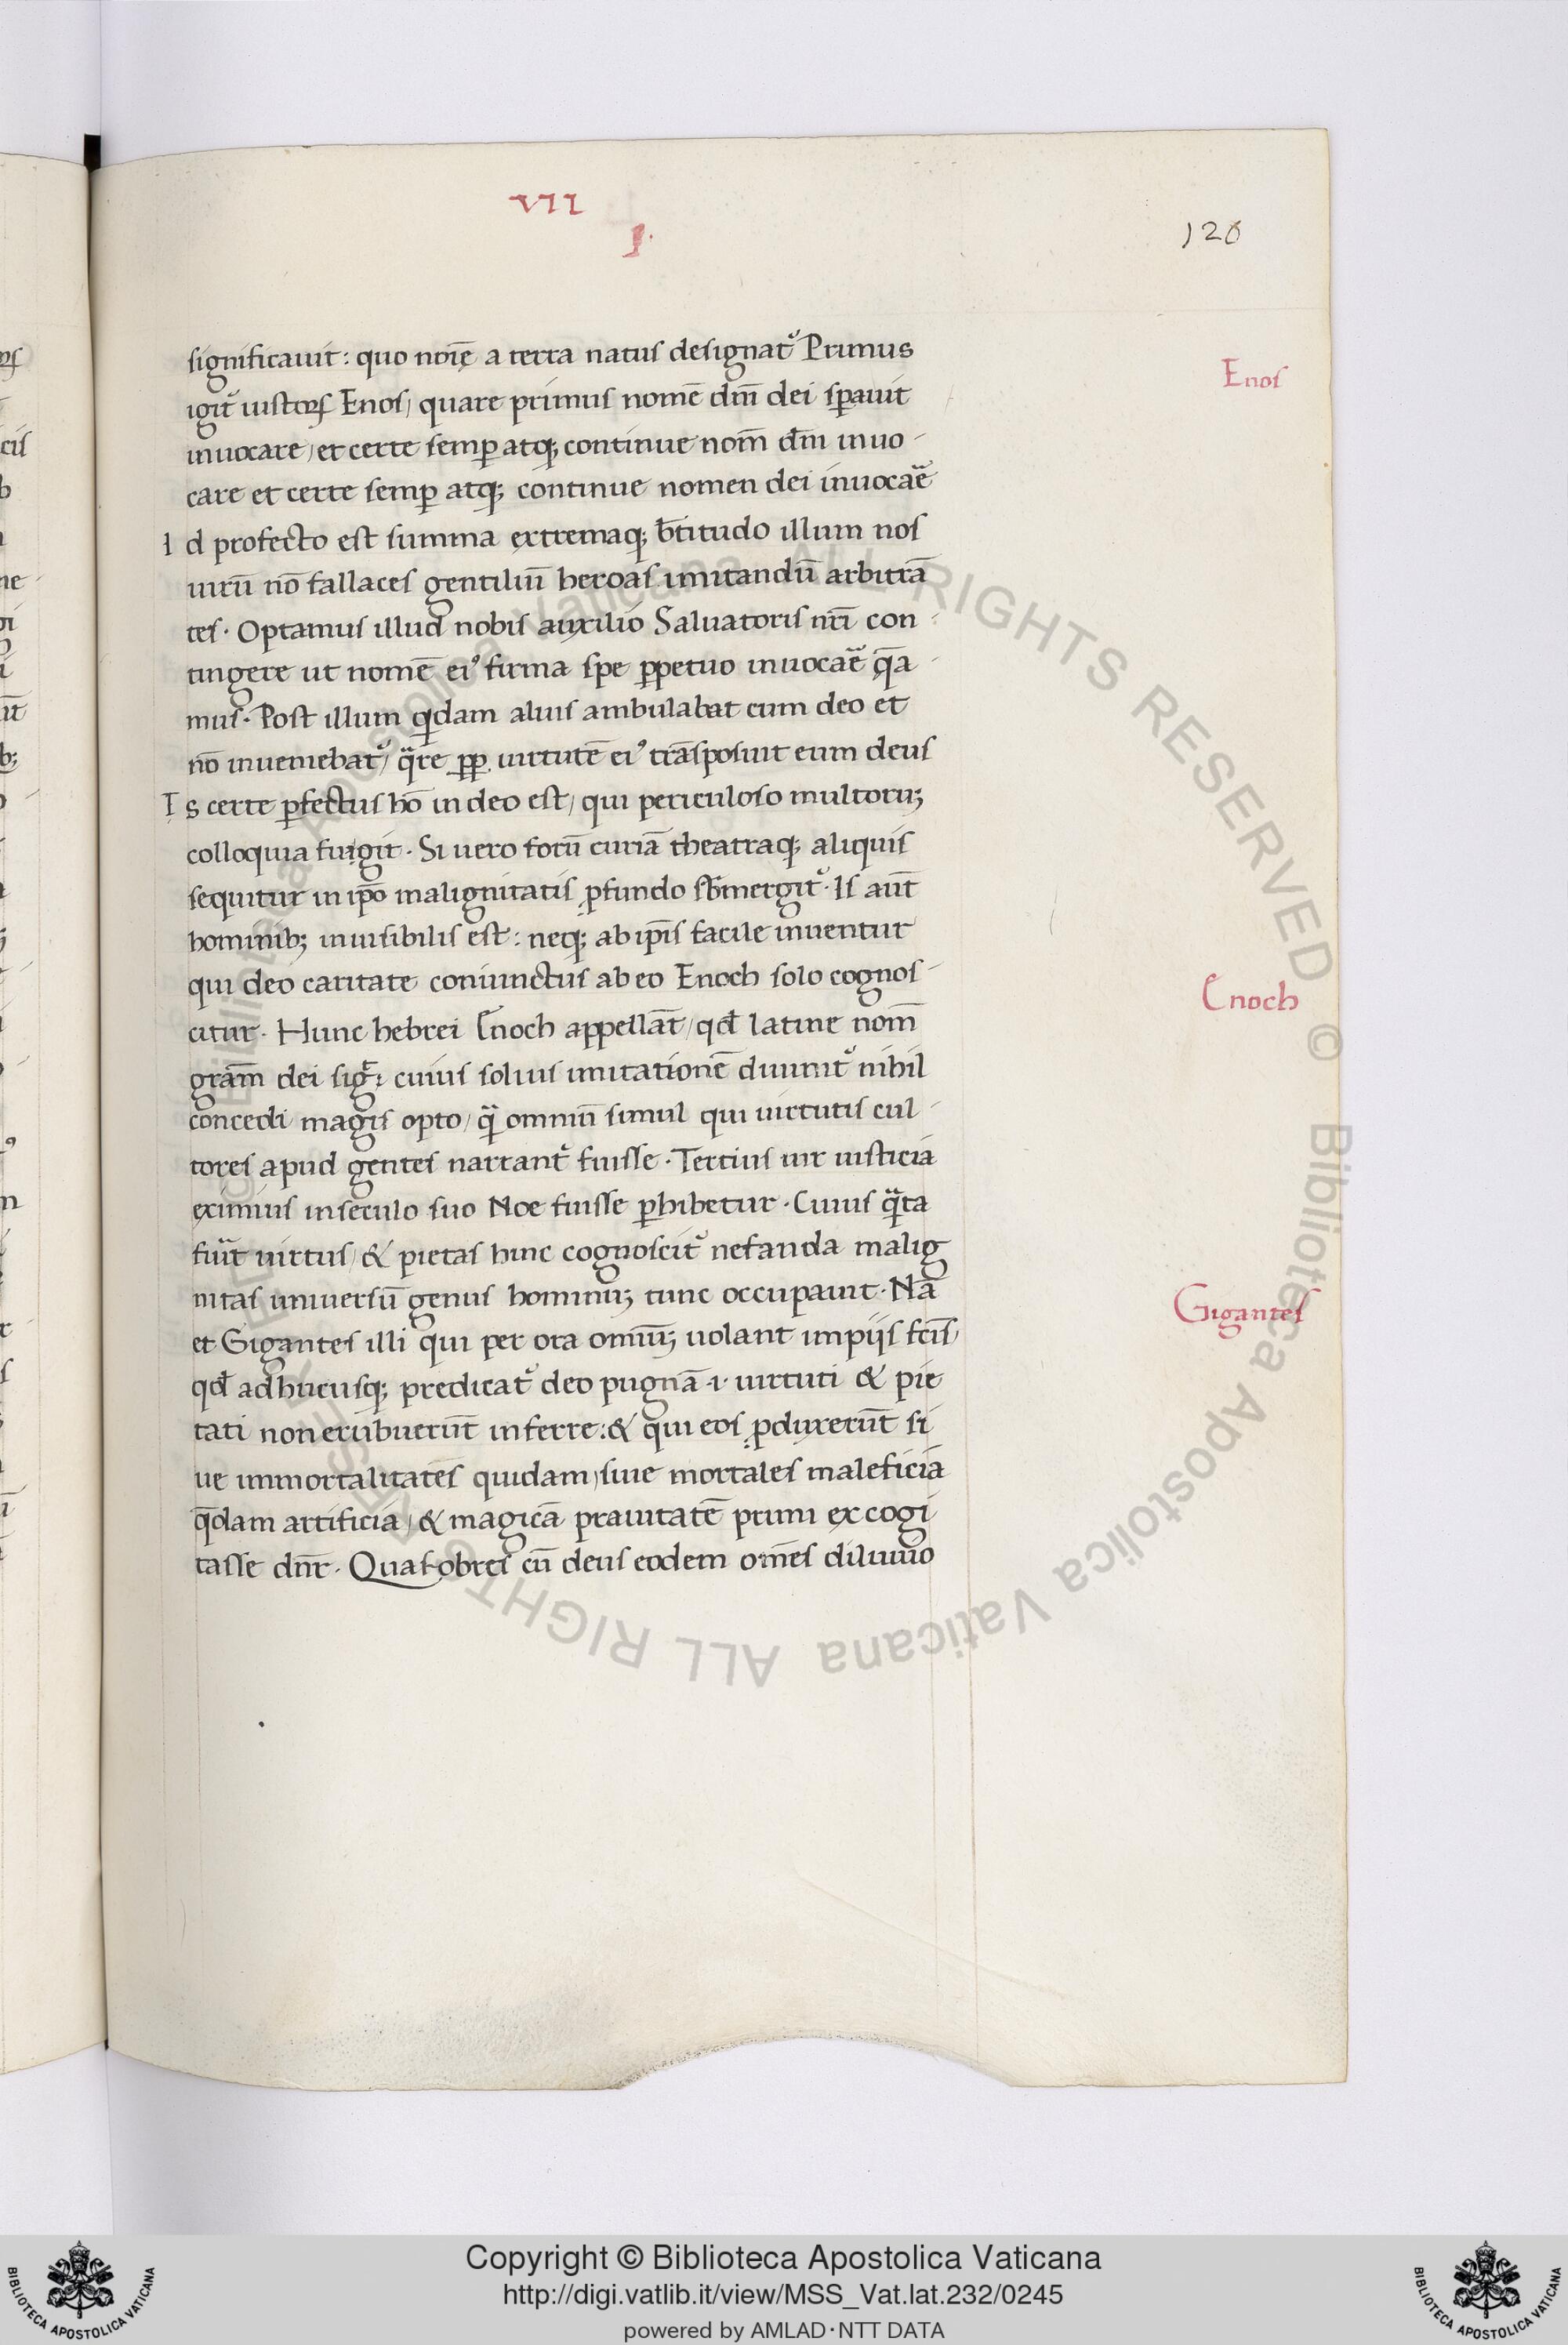 VII
I.
120
significauit: quo noīe a terra natus designat᷑ Primus
Enos
igit᷑ iustoꝝ Enos, quare primus nomē dn̄i dei sꝑauit
inuocare, et certe semꝑ atqꝫ continue nom̄ dn̄i inuo-
care et certe semꝑ atqꝫ continue nomen dei inuocar̄e
Id profecto est summa extremaqꝫ b̄titudo illum nos
uirū nō fallaces gentiliū heroas imitandū arbitrā
tes. Optamus illud nobis auxilio Saluatoris nr̄i con-
tingere ut nomē eiꝰ firma spe ꝑpetuo inuocar̄e q̄a-
mus. Post illum quidam alius ambulabat cum deo et
nō inueniebat᷑, qͣre ꝓp. uirtutē eiꝰ trāsposuit eum deus
Is certe ꝑfectus hō in deo est, qui periculoso multoruꝫ
colloquia fuigit. Si uero forū curiā theatraqꝫ aliquis
sequitur in ip̄o malignitatis ꝓfundo sb̄mergit᷑. Is aūt
hominibꝫ inuisibilis est: neqꝫ ab ip̄is facile inuentur
qui deo caritate coniunctus ab eo Enoch solo cognos-
Enoch
citur. Hunc hebrei Enoch appellāt, qđ latine nom̄
gram̄ dei sigr̄: cuius solius imitationē diuinit᷑ nihil
concedi magis opto, qͣ omniū simul qui uirtutis cul-
tores apud gentes narrant᷑ fuisse. Tertius uir iusticia
eximius in seculo suo Noe fuisse ꝑhibetur. Cuius qͣta
fuͣt uirtus, & pietas hinc cognoscit᷑ nefanda malig
nitas uniuersū genus hominuꝫ tunc occupauit. Nā
Gigantes
et Gigantes illi qui per ora omiuꝫ uolant impijs fc̄is,
qđ adhucusqꝫ predicat᷑ deo pugnā .i. uirtuti & pie
tati non erubuerūt inferre: & qui eos ꝓduxerūt si
ue immortalitates quidam, siue mortales maleficia
q̄dam artificia, & magicā prauitatē primi excogi
tasse dn̄r. Quas obres cū deus eodem om̄es diluuio
© Biblioteca Apostolica Vaticana ALL RIGHTS RESERVED © Biblioteca Apostolica Vaticana ALL RIGHTS RESERVED
BIBLIOTECA APOSTOLICA VATICANA
Copyright © Biblioteca Apostolica Vaticana
http://digi.vatlib.it/view/MSS_Vat.lat.232/0245
powered by AMLAD·NTT DATA
BIBLIOTECA APOSTOLICA VATICANA